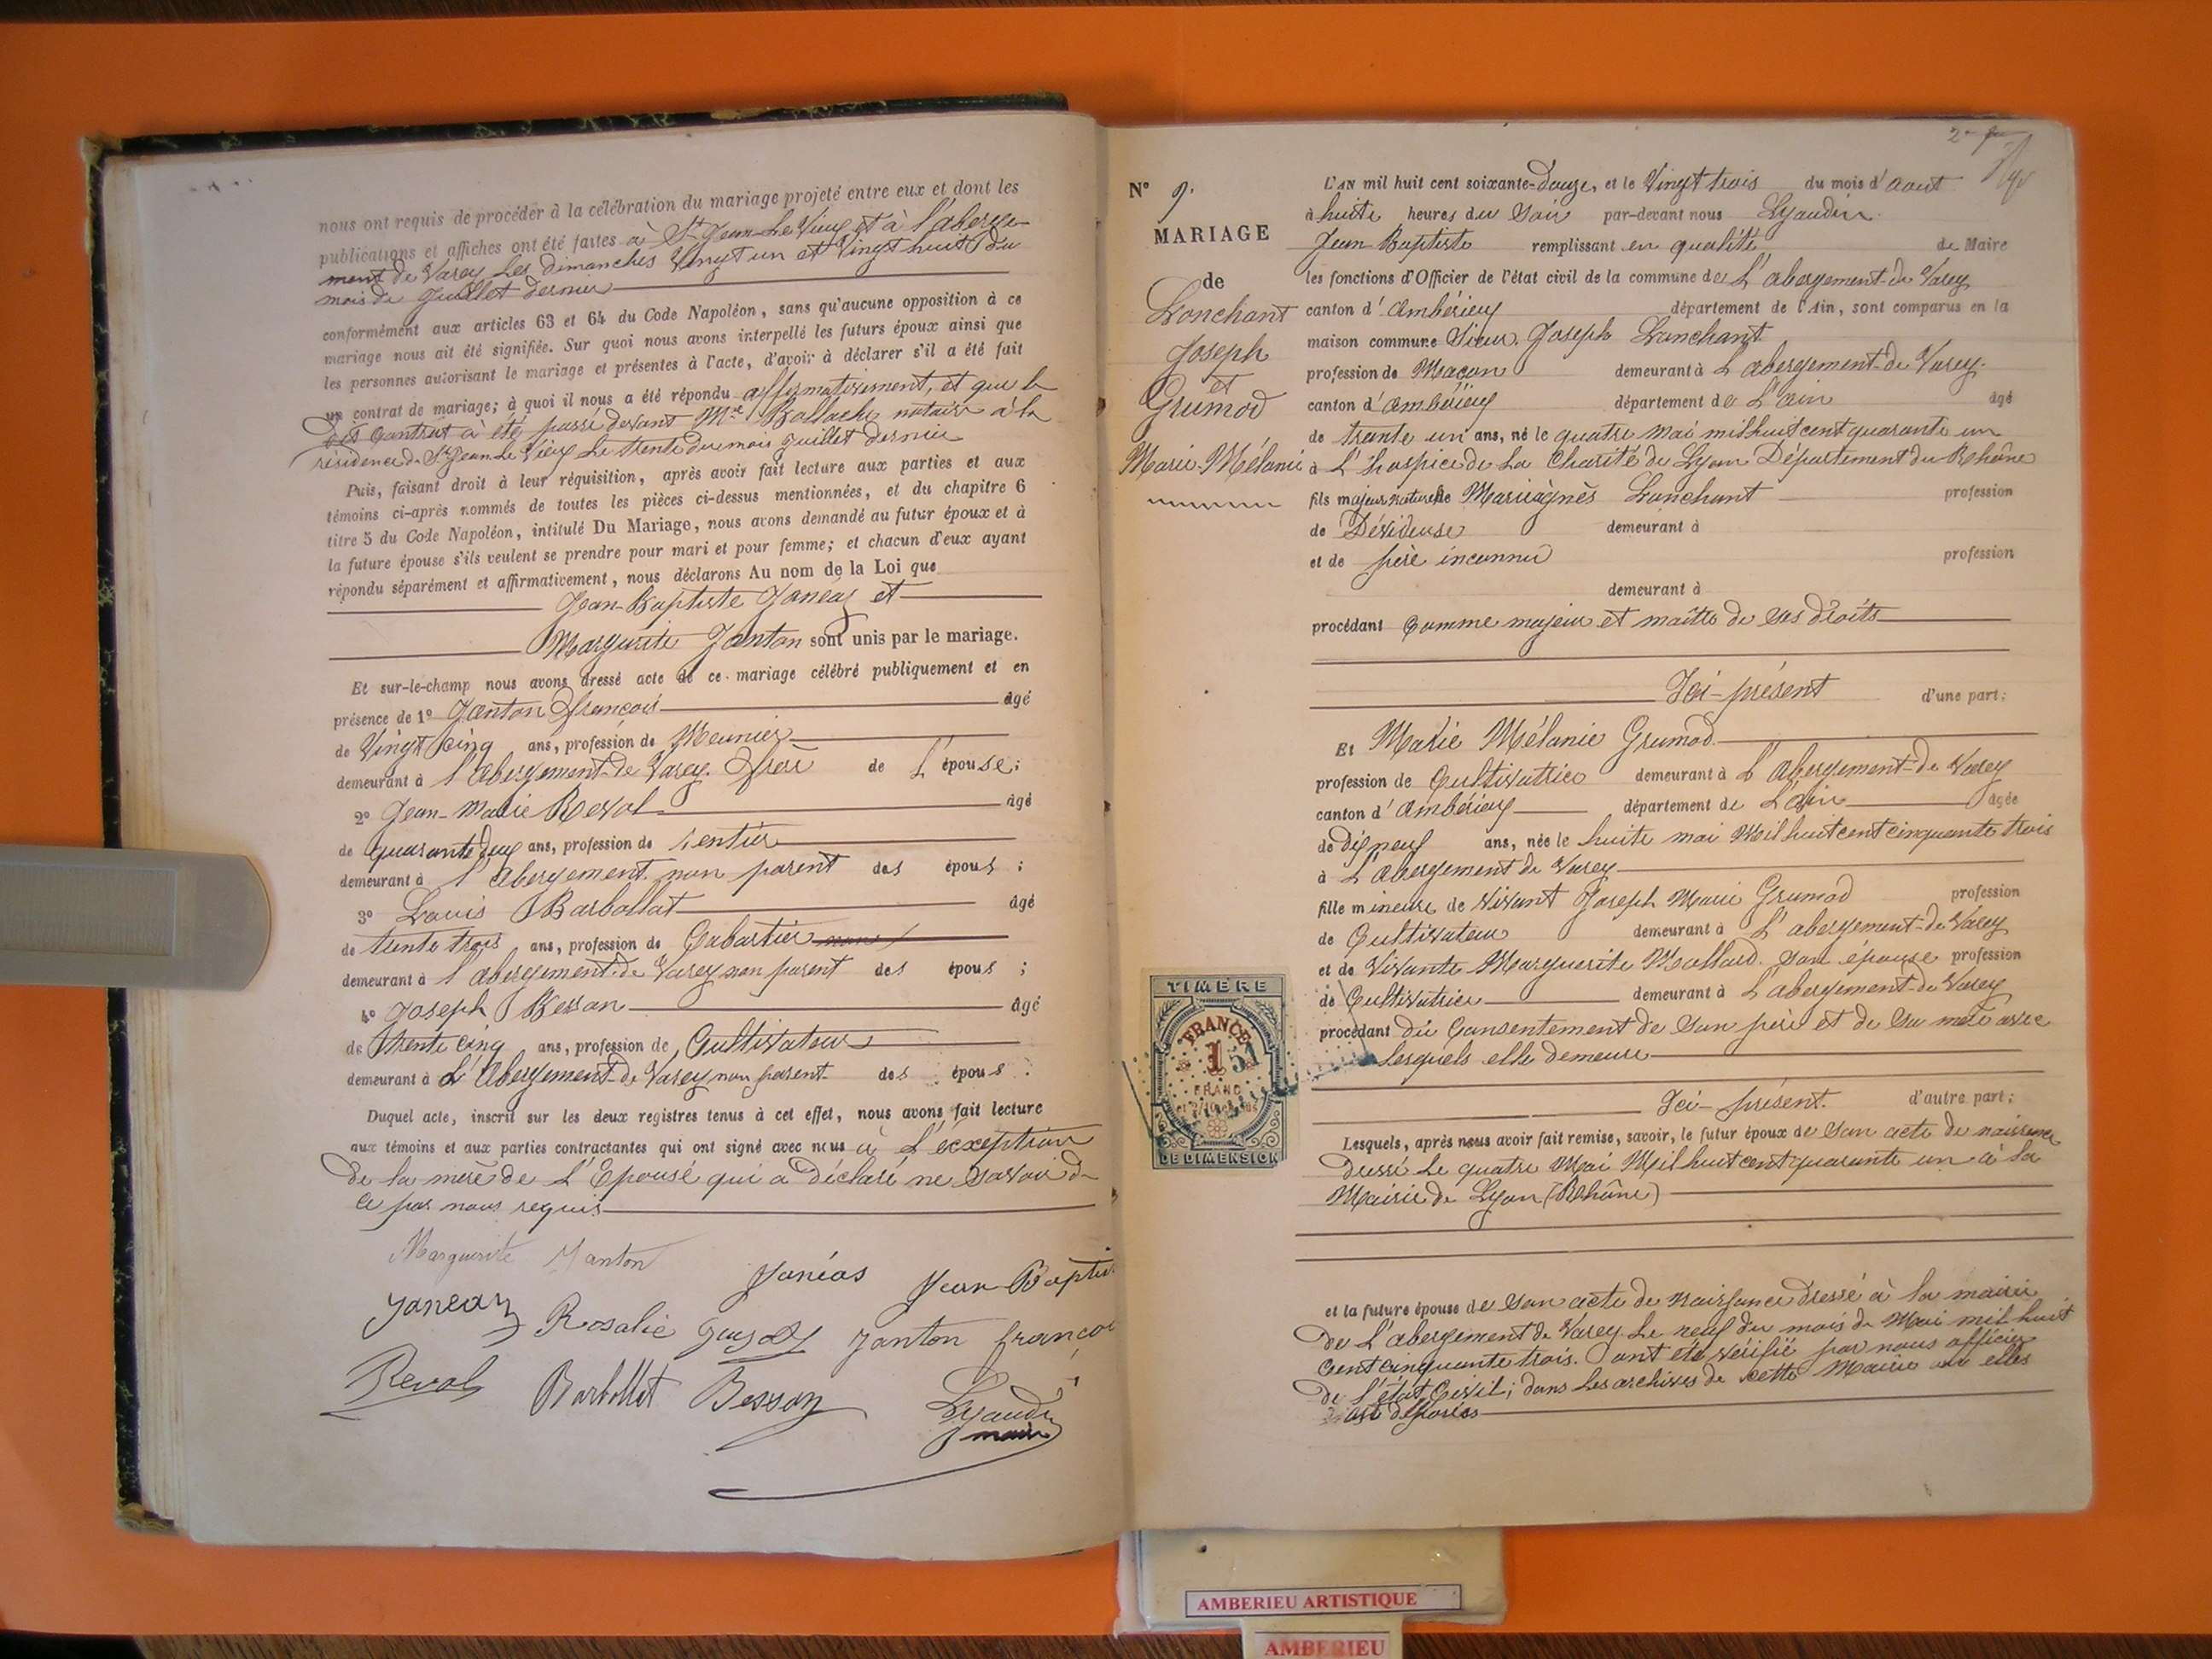 nous ont requis de procéder à la célébration du mariage projeté entre eux et dont les
publications et affiches ont été faites à St Jean-Le Vieux et à l'aberge
ment de Varey Les dimanches Vingt un et Vingt huit du
mois de Juillet dernier
conformément aux articles 63 et 64 du Code Napoléon, sans qu'aucune opposition à ce
mariage nous ait été signifiée. Sur quoi nous avons interpellé les futurs époux ainsi que
les personnes autorisant le mariage et présentes à l'acte, d'avoir à déclarer s'il a été fait
un contrat de mariage; à quoi il nous a été répondu affirmativement, et que le
dit Contrat à été passé devant Me notaire à la
résidence de St Jean Le Vieux Le trente du mois Juillet dernier
Puis, faisant droit à leur réquisition, après avoir fait lecture aux parties et aux
témoins ci-après nommés de toutes les pièces ci-dessus mentionnées, et du chapitre 6
titre 5 du Code Napoléon, intitulé Du Mariage, nous avons demandé au futur époux et à
la future épouse s'ils veulent se prendre pour mari et pour femme; et chacun d'eux ayant
répondu séparément et affirmativement, nous déclarons Au nom de la Loi que
Jean-Baptiste Janéaz et
Marguerite Janton sont unis par le mariage.
Et sur-le-champ nous avons dressé acte de ce mariage célébré publiquement et en
présence de 1° Janton François âgé
de Vingt Cinq ans, profession de Meunier
demeurant à l'Abergement-de Varey. frère de L'épouse;
2° Jean-Marie Revol âgé
de quarante deux ans, profession de rentier
demeurant à l'Abergement non parent des époux;
3° Louis Barbollat âgé
de trente trois ans, profession de Cabartier
demeurant à l'abergement-de Varey non parent des époux;
4° Joseph Besson âgé
de trente Cinq ans, profession de Cultivateur
demeurant à L'Abergement-de Varey non parent des époux.
Duquel acte, inscrit sur les deux registres tenus à cet effet, nous avons fait lecture
aux témoins et aux parties contractantes qui ont signé avec nous à L'éxception
De la mère de L'Epousé qui a Déclaré ne Savoir de
ce par nous requis
Marguerite Janton
Janéas Jean Baptis
Janeaz Rosalie Janton françoi
Revol Barbollat Besson Lyaudin
maire
2
N° 9.
MARIAGE
de
Lonchant
Joseph
et
Grumod
Marie-Mélanie
L'AN mil huit cent soixante-Douze, et le Vingt trois du mois d'aout
à huite heures du Soir par-devant nous Lyaudin
Jean Baptiste remplissant en qualité de Maire
les fonctions d'Officier de l'état civil de la commune de L'abergement-de Varey
canton d'Ambérieux département de l'Ain, sont comparus en la
maison commune Sieur Joseph Lonchant
profession de Maçon demeurant à L'abergement-de Varey.
canton d'ambérieux département de L'ain âgé
de trente un ans, né le quatre mai mil huit cent quarante un
à L'hospice de La Charité de Lyon Département du Rhône
fils majeur naturel de Marie agnès Lonchant profession
de Dévideuse demeurant à
et de père inconnu profession
demeurant à
procédant Comme majeur et maître de ses droits
Ici-présent d'une part;
Et Marie Mélanie Grumod
profession de Cultivatrice demeurant à L'abergement-de Varey
canton d'Ambérieux département de L'ain âgée
de dix neuf ans, née le huite mai Mil huit cent cinquante trois
à L'abergement de Varey
fille mineure de vivant Joseph Marie Grumod profession
de Cultivateur demeurant à L'abergement-de Varey
et de Vivante Marguerite Mollard Son épouse profession
de Cultivatrice demeurant à L'abergement-de Varey
procédant du Consentement de Son père et de Sa mère avec
Lesquels elle demeure
Ici-présent. d'autre part;
Lesquels, après nous avoir fait remise, savoir, le futur époux de Son acte de naissance
Dressé Le quatre Mai Mil huit cent quarante un à la
Mairie de Lyon (Rhône)
et la future épouse de Son acte de Naissance Dressé à la mairie
De L'abergement de Varey Le neuf du mois de Mai mil huit
Cent cinquante trois. ont été vérifié par nous officier
de L'état Civil; dans Les archives de cette Mairie où elles
sont déposées
TIMBRE
FRANCE
1
51
FRANC
DE DIMENSION
AMBERIEU ARTISTIQUE
AMBERIEU